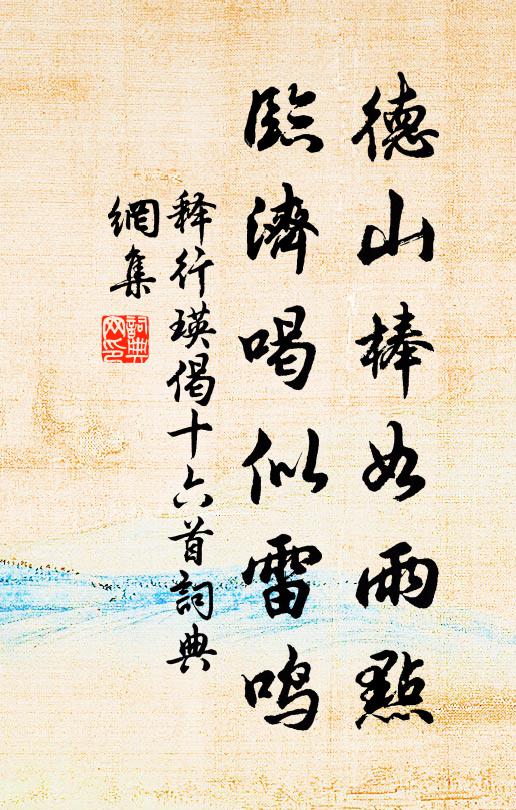 德山棒如雨點
臨濟喝似雷鸣
释行瑛偈十六首詞典
網集
詞典